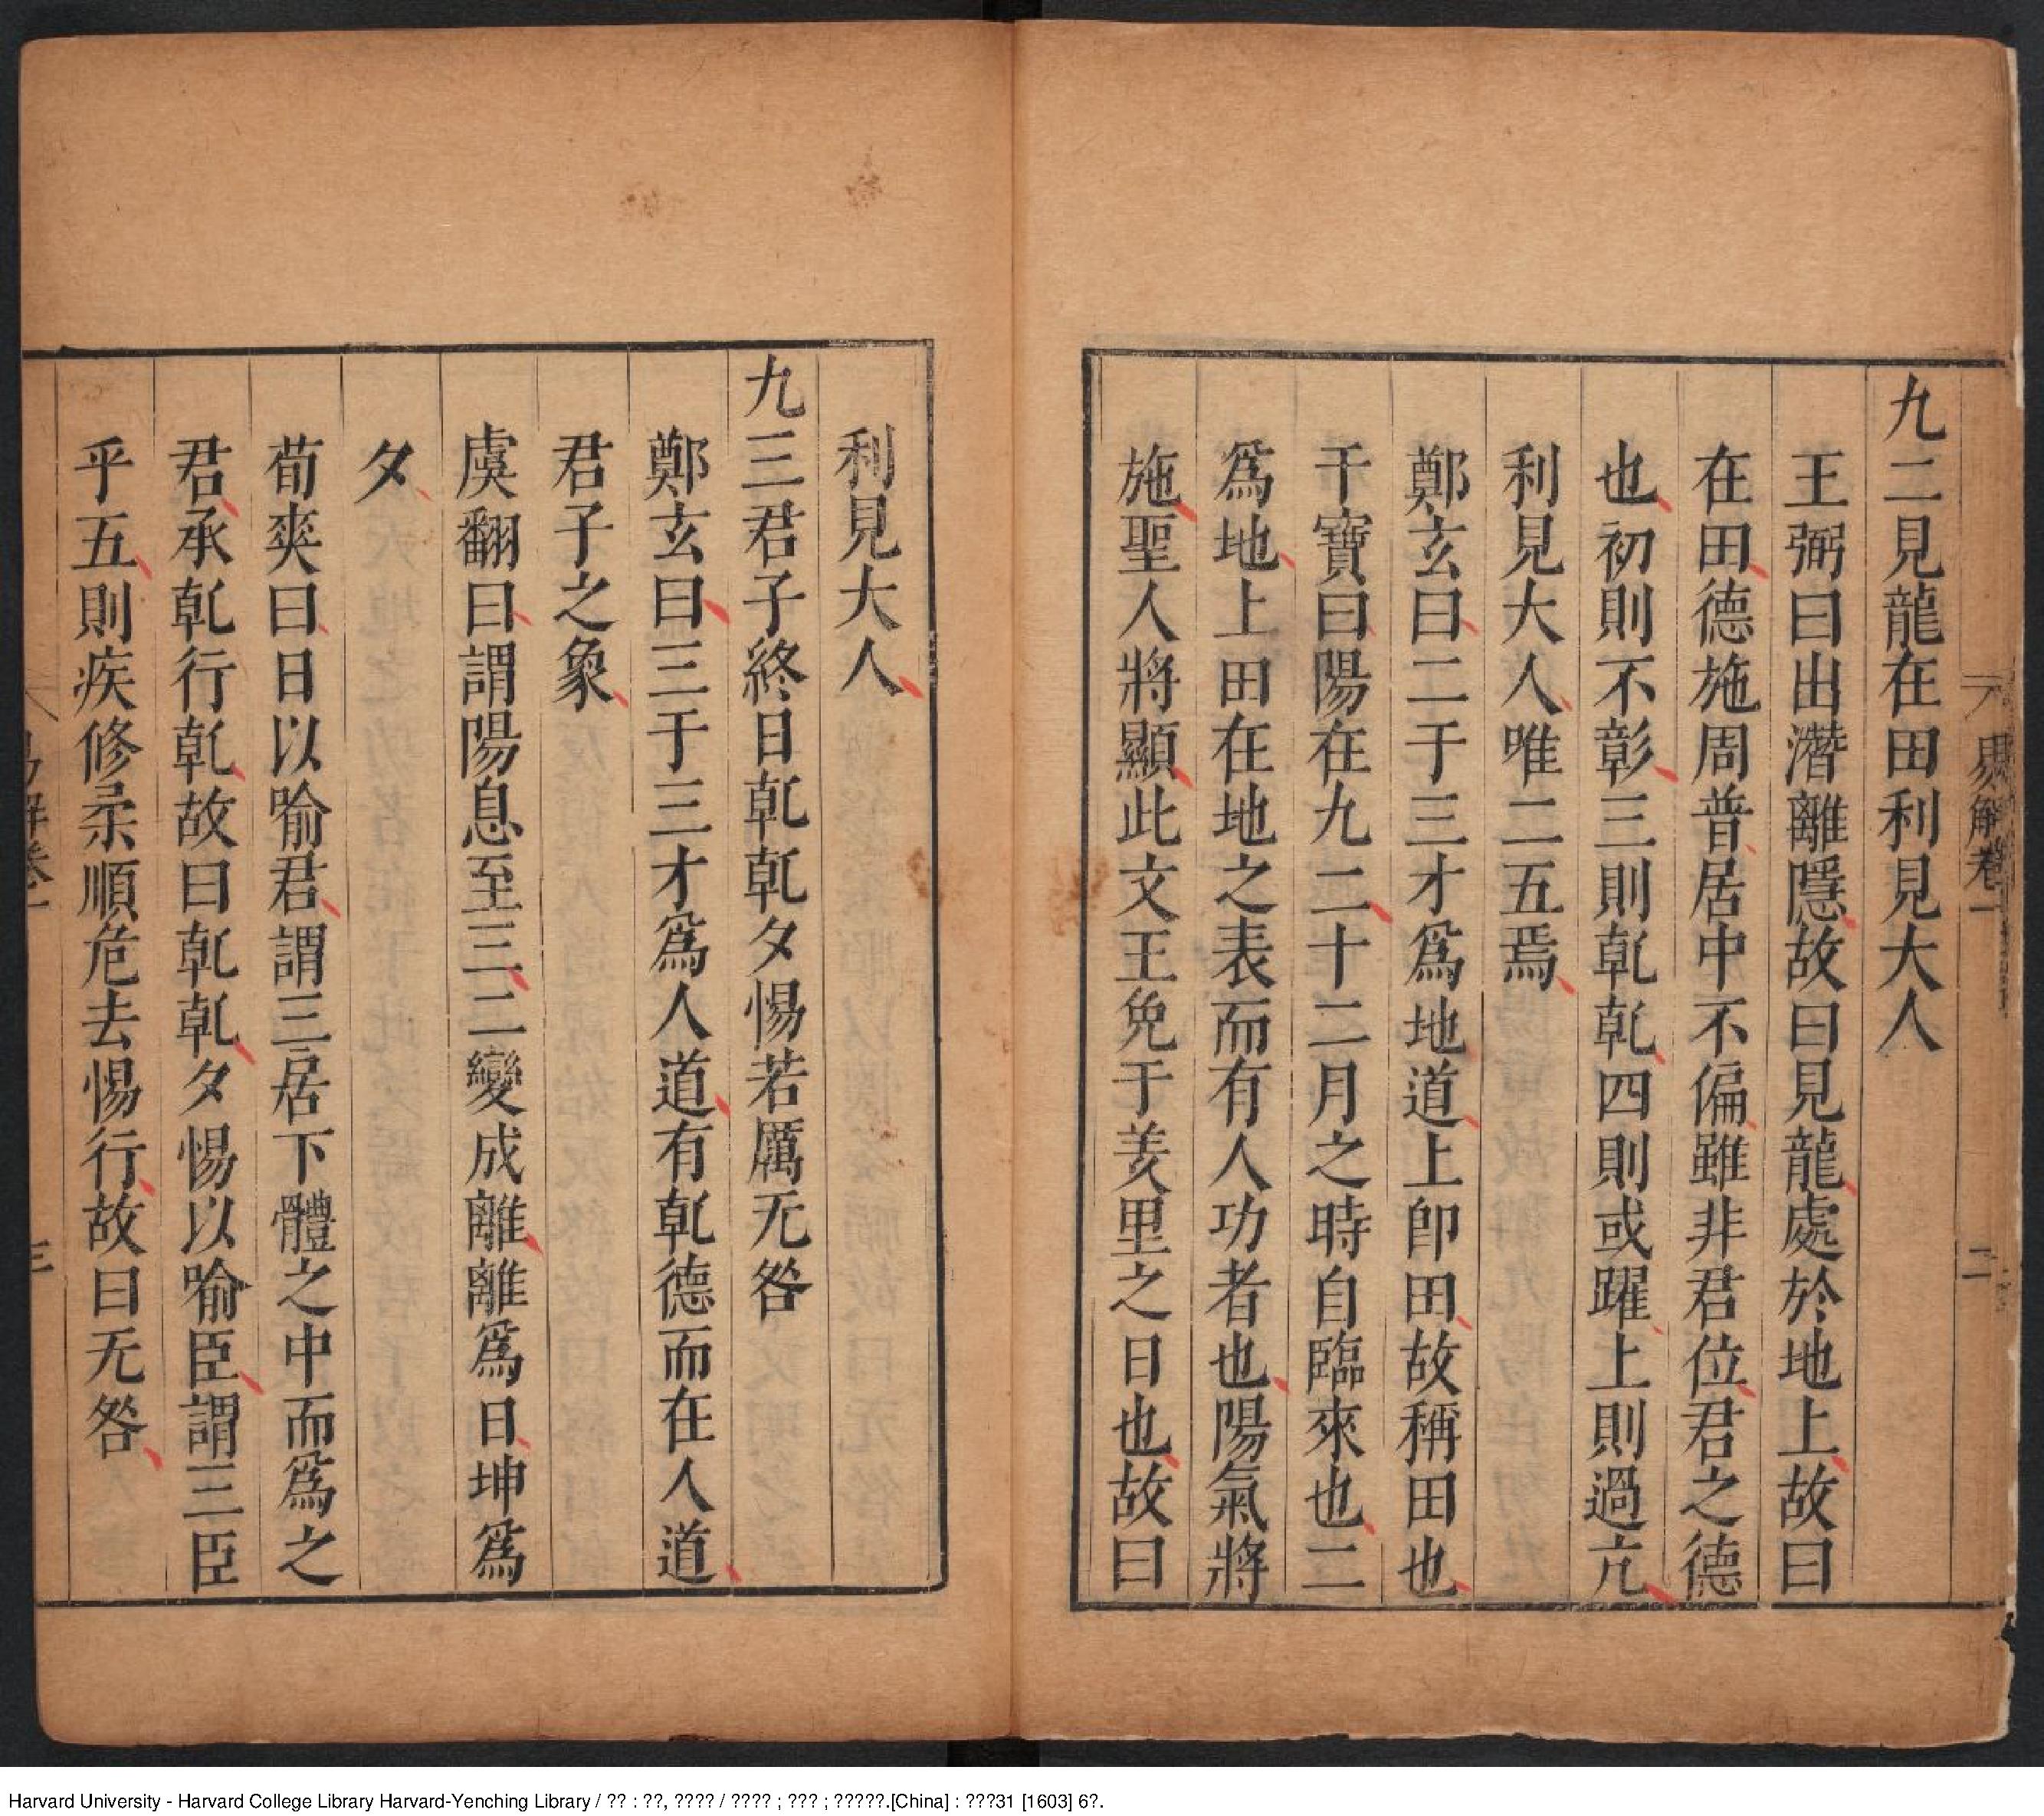 易解卷一
二
九二見龍在田利見大人
王弼曰出潛離隱故曰見龍處於地上故曰
在田德施周普居中不偏雖非君位君之德
也初則不彰三則乹乹四則或躍上則過亢
利見大人唯二五焉
鄭玄曰二于三才爲地道上卽田故稱田也
干寶曰陽在九二十二月之時自臨來也二
爲地上田在地之表而有人功者也陽氣將
施聖人將顯此文王免于羑里之日也故曰
利見大人
九三君子終日乹乹夕惕若厲无咎
鄭玄曰三于三才爲人道有乹德而在人道
君子之象
虞翻曰謂陽息至三二變成離離爲日坤爲
夕
荀爽曰日以喻君謂三居下體之中而爲之
君承乹行乹故曰乹乹夕惕以喻臣謂三臣
乎五則疾修柔順危去惕行故曰无咎
易解卷一
三
Harvard University - Harvard College Library Harvard-Yenching Library / ?? : ??, ???? / ???? ; ??? ; ?????.[China] : ???31 [1603] 6?.